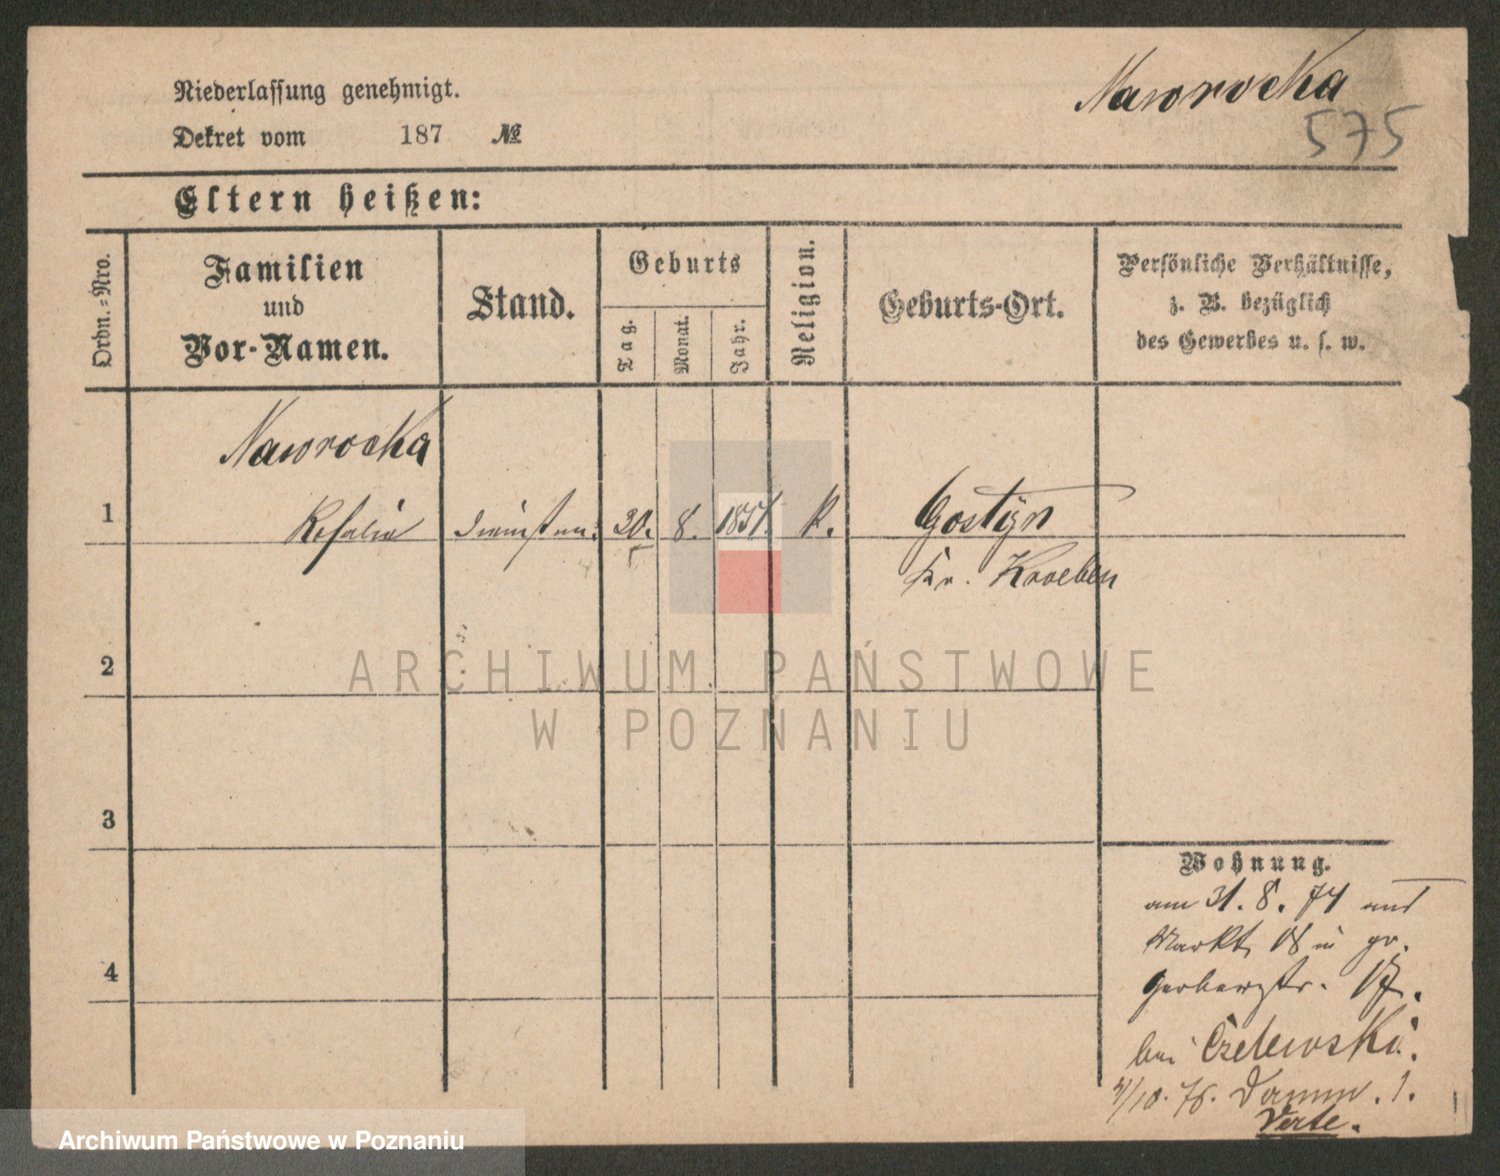 Niederlassung genehmigt.
Nawrocka
575
Dekret vom 187 №
Eltern heißen:
Ordn.-Nro.
Familien
und
Vor-Namen.
Stand.
Geburts
Tag.
Monat.
Jahr.
Religion.
Geburts-Ort.
Persönliche Verhältnisse,
z. B. bezüglich
des Gewerbes u. s. w.
Nawrocka
1 Rosalie 30. 8. 1851. k. Gostÿn
Kr. Kroeben
2
3
4
Wohnung.
am 31. 8. 74 aus
Markt 18 in gr.
Gerberstr. 17.
bei Czelewski.
4/10. 76. Damm. 1.
Verte.
ARCHIWUM PAŃSTWOWE
W POZNANIU
Archiwum Państwowe w Poznaniu